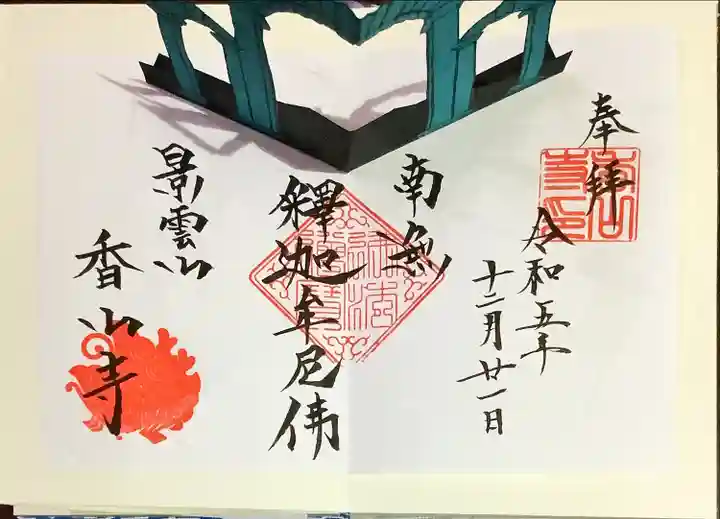 奉拜
令和五年
十二月廿一日
南無
釋迦牟尼佛
景雲山
香山寺